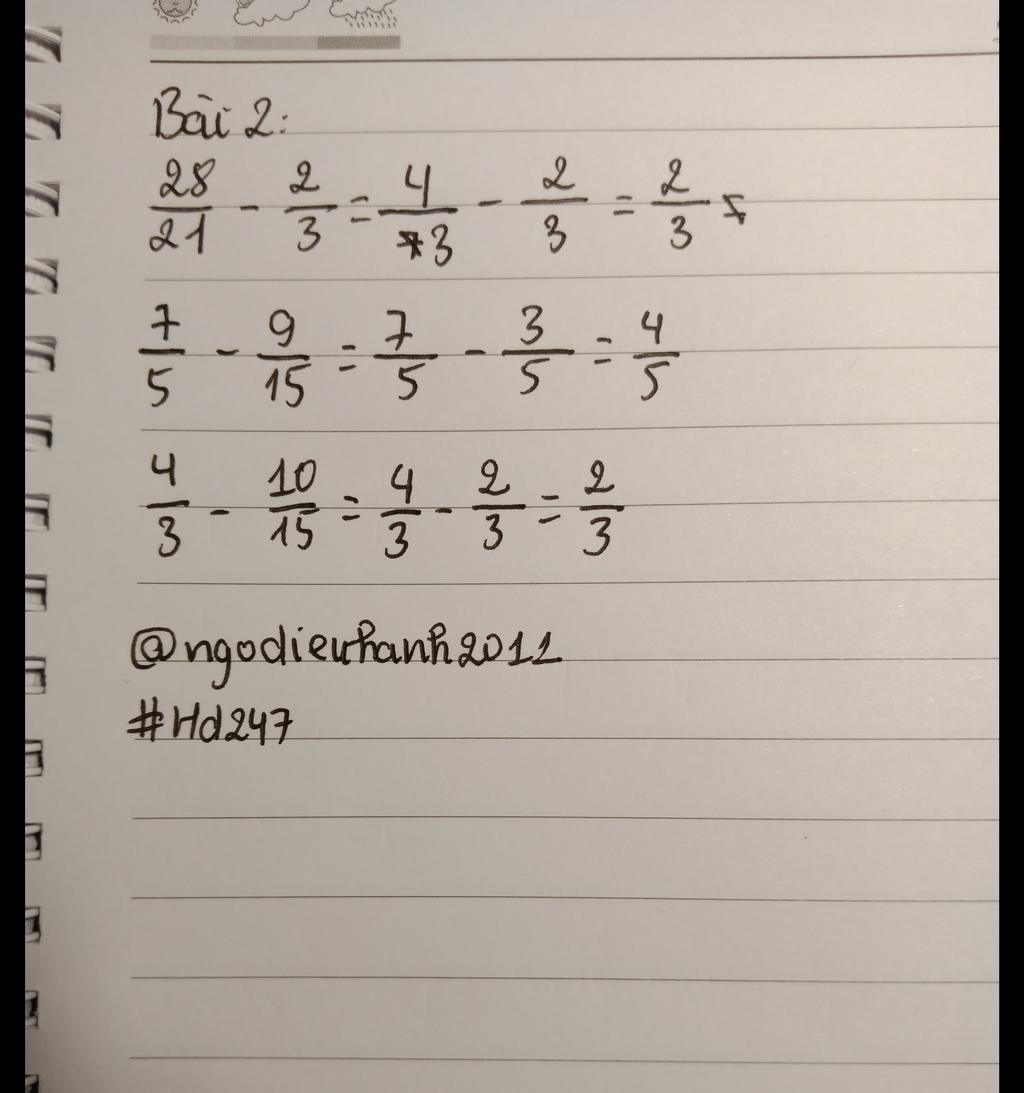 Bài 2:
28/21 - 2/3 = 4/3 - 2/3 = 2/3
7/5 - 9/15 = 7/5 - 3/5 = 4/5
4/3 - 10/15 = 4/3 - 2/3 = 2/3
@ngodieuhanh2011
#Hd247